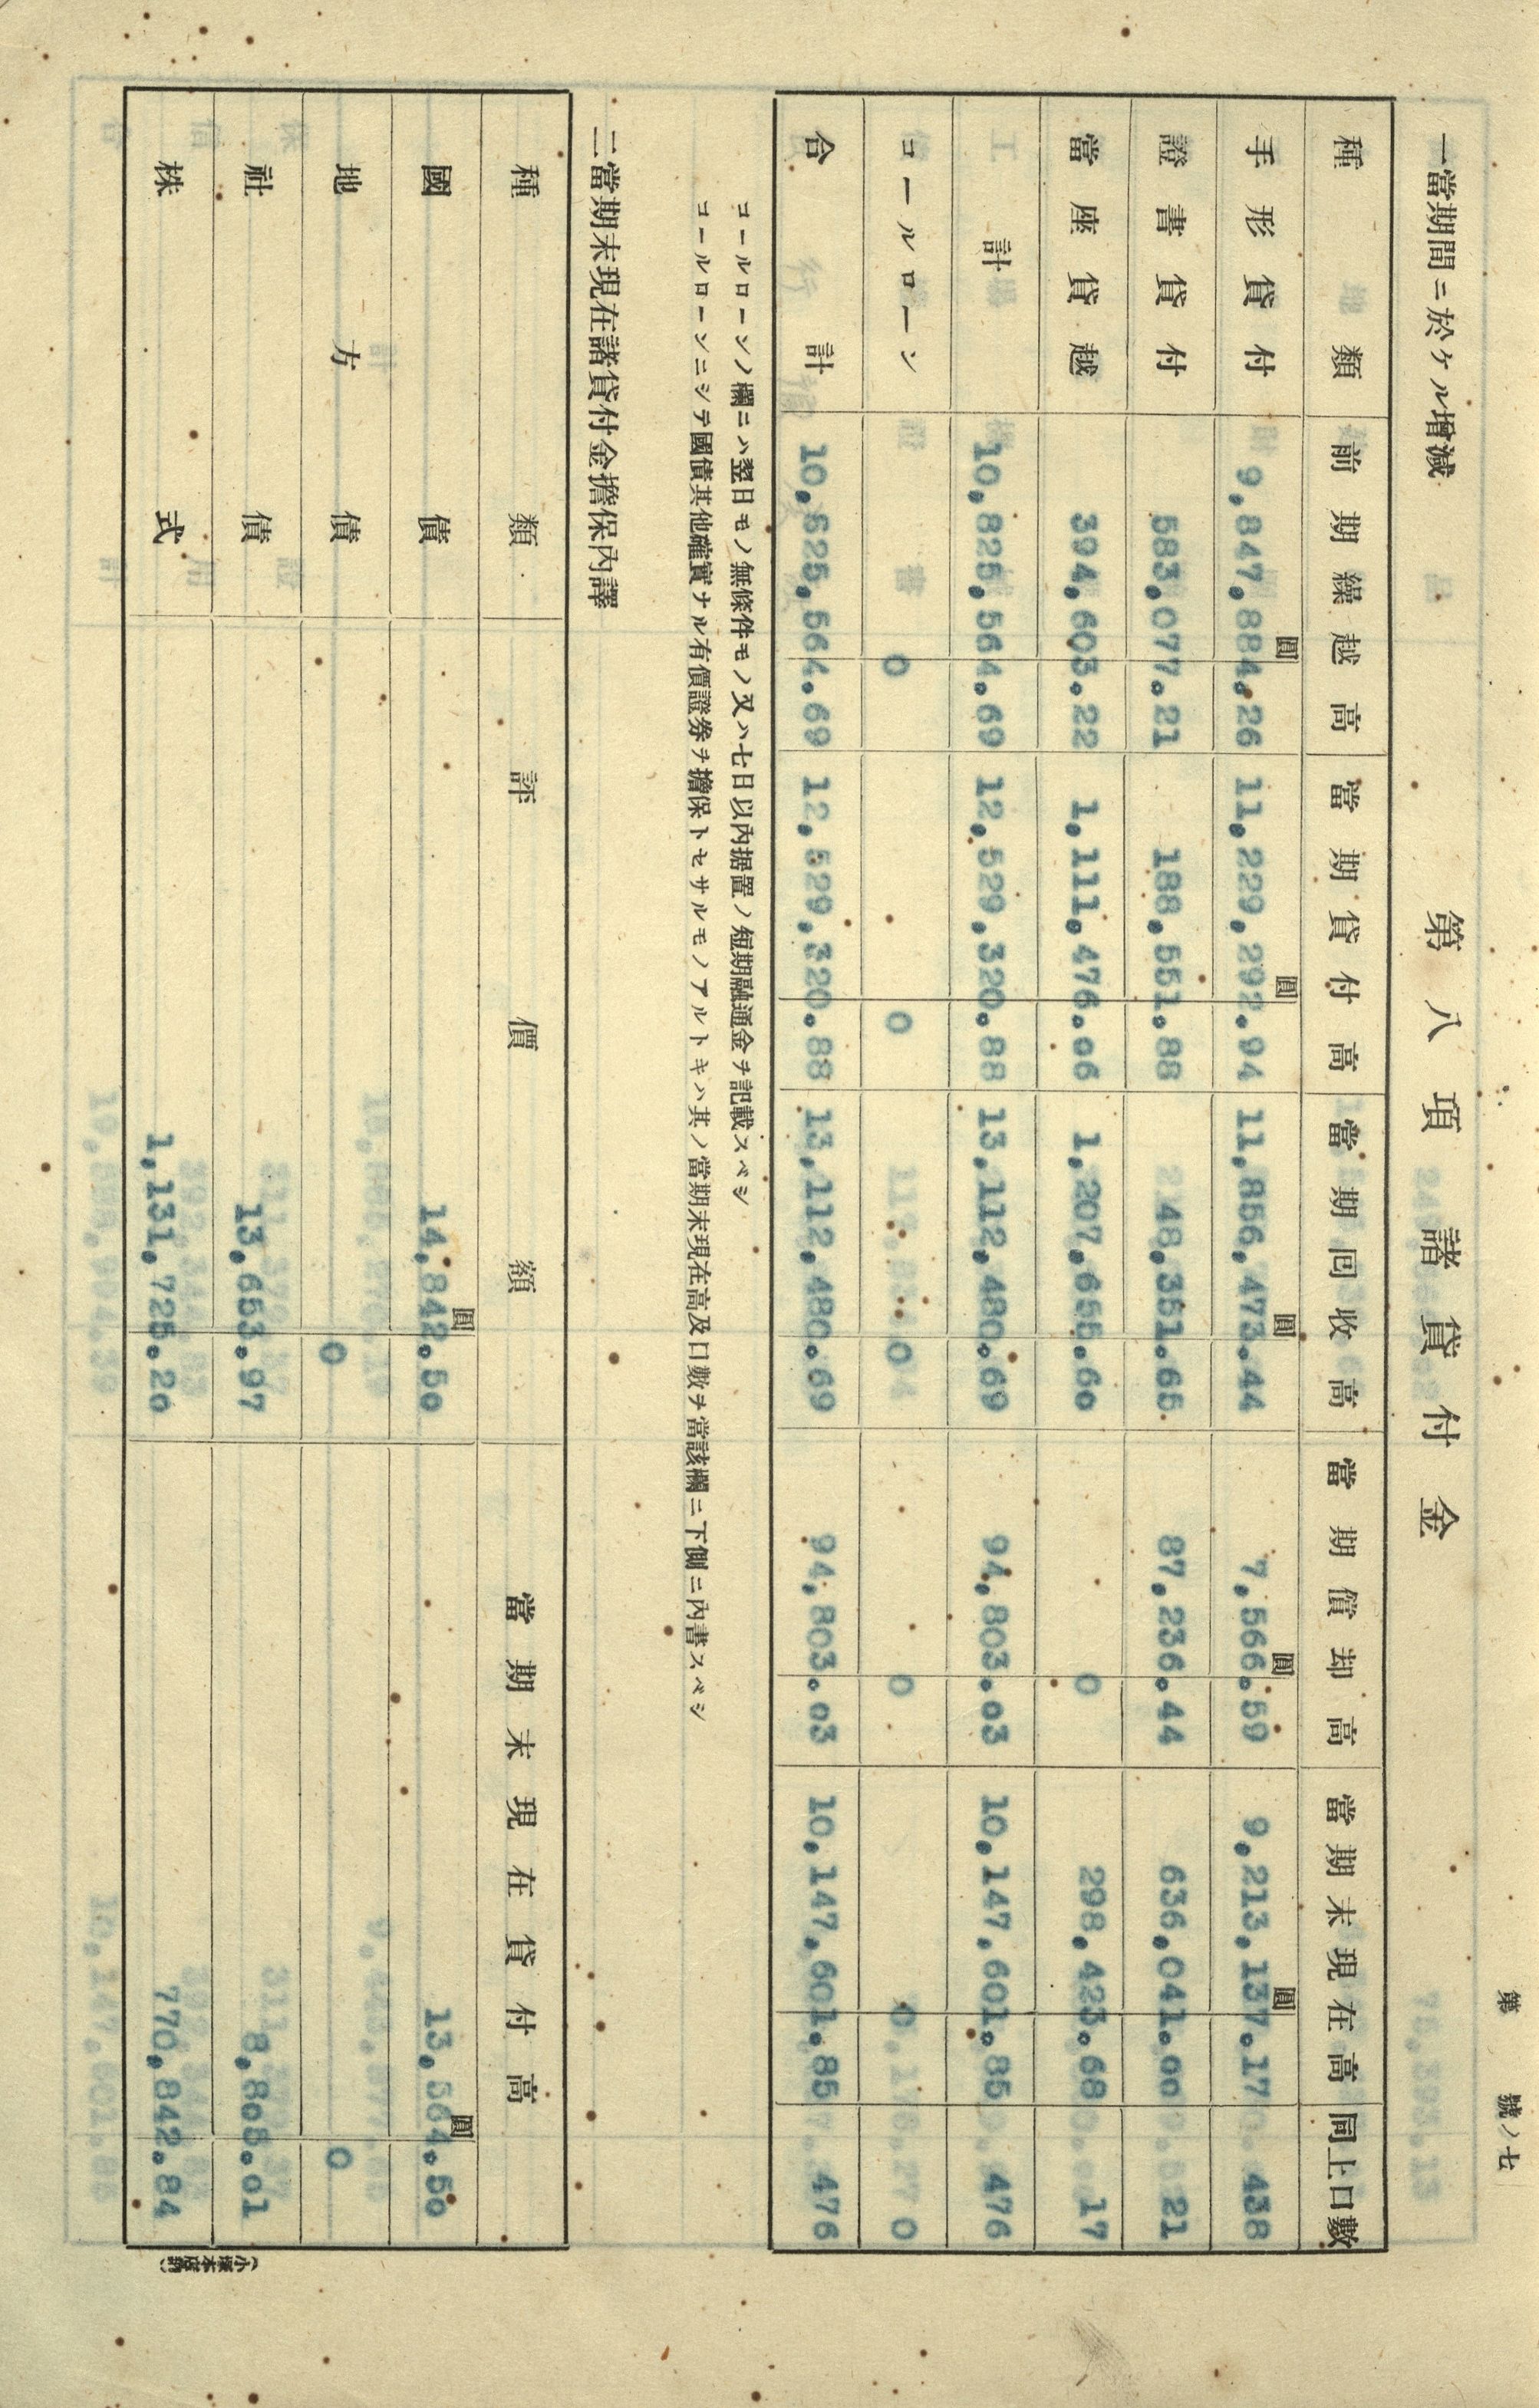 第 號ノ七
第八項 諸貸付金
一當期間ニ於ケル增減
種類 前期繰越高 當期貸付高 當期回收高 當期償却高 當期末現在高 同上口數
圓 圓 圓 圓 圓
手形貸付 9,847,884.26 11,229,292.94 11,856,473.44 7,566.59 9,213,137.17 438
證書貸付 583,077.21 188,551.88 48,351.65 87,236.44 636,041.00 21
當座貸越 394,603.22 1,111,476.06 1,207,655.60 0 298,423.68 17
計 10,825,564.69 12,529,320.88 13,112,480.69 94,803.03 10,147,601.85 476
コールローン 0 0 0 0 0 0
合計 10,825,564.69 12,529,320.88 13,112,480.69 94,803.03 10,147,601.85 476
コールローンノ欄ニハ翌日モノ無條件モノ又ハ七日以內据置ノ短期融通金ヲ記載スベシ
コールローンニシテ國債其他確實ナル有價證券ヲ擔保トセサルモノアルトキハ其ノ當期末現在高及口數ヲ當該欄ニ下側ニ內書スベシ
二當期末現在諸貸付金擔保內譯
種類 評價額 當期末現在貸付高
圓 圓
國債 14,842.50 13,564.50
地方債 0 0
社債 13,653.97 8,808.01
株式 1,131,725.20 770,842.84